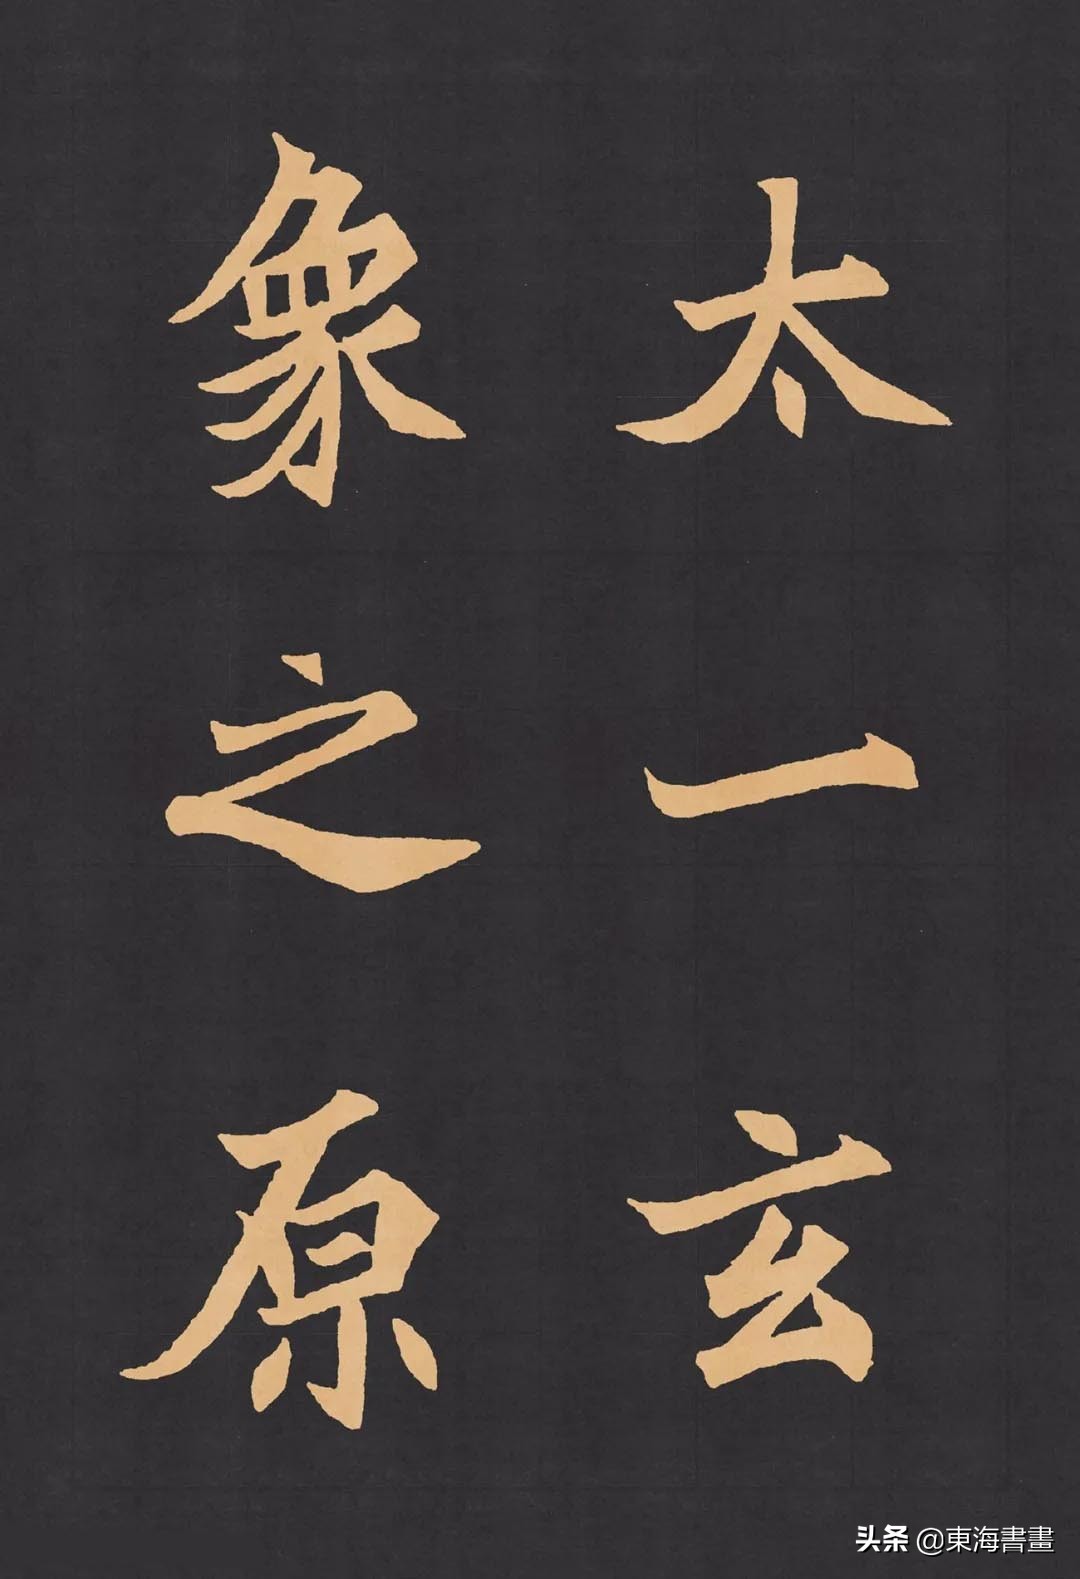 太一玄
象之原
头条 @東海書畫